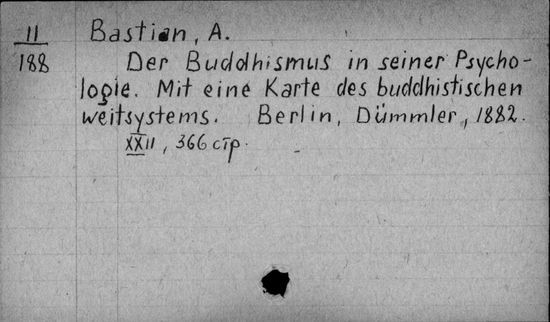 II
188
Bastian, A.
Der Buddhismus in seiner Psycho-
logie. Mit eine Karte des buddhistischen
weitsystems. Berlin, Dümmler, 1882.
XXII, 366 стр.